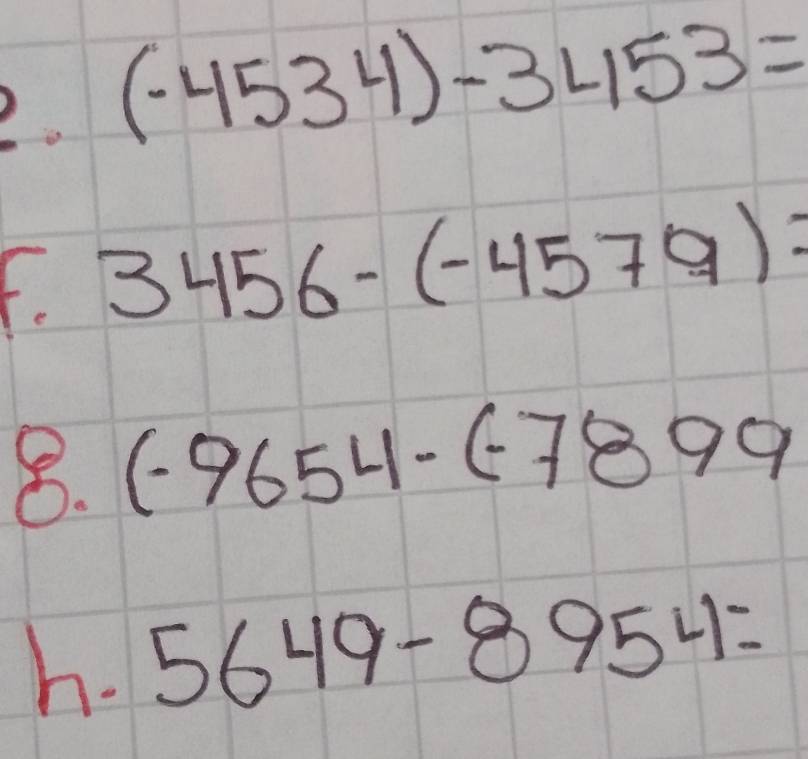 e. (-4534)-3453=
f. 3456-(-4579)=
8. (-9654-(-7899
h. 5649-8954=